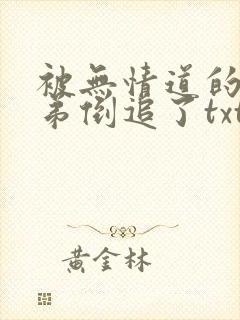 被無情道的
弟倒追了txt
黃金林